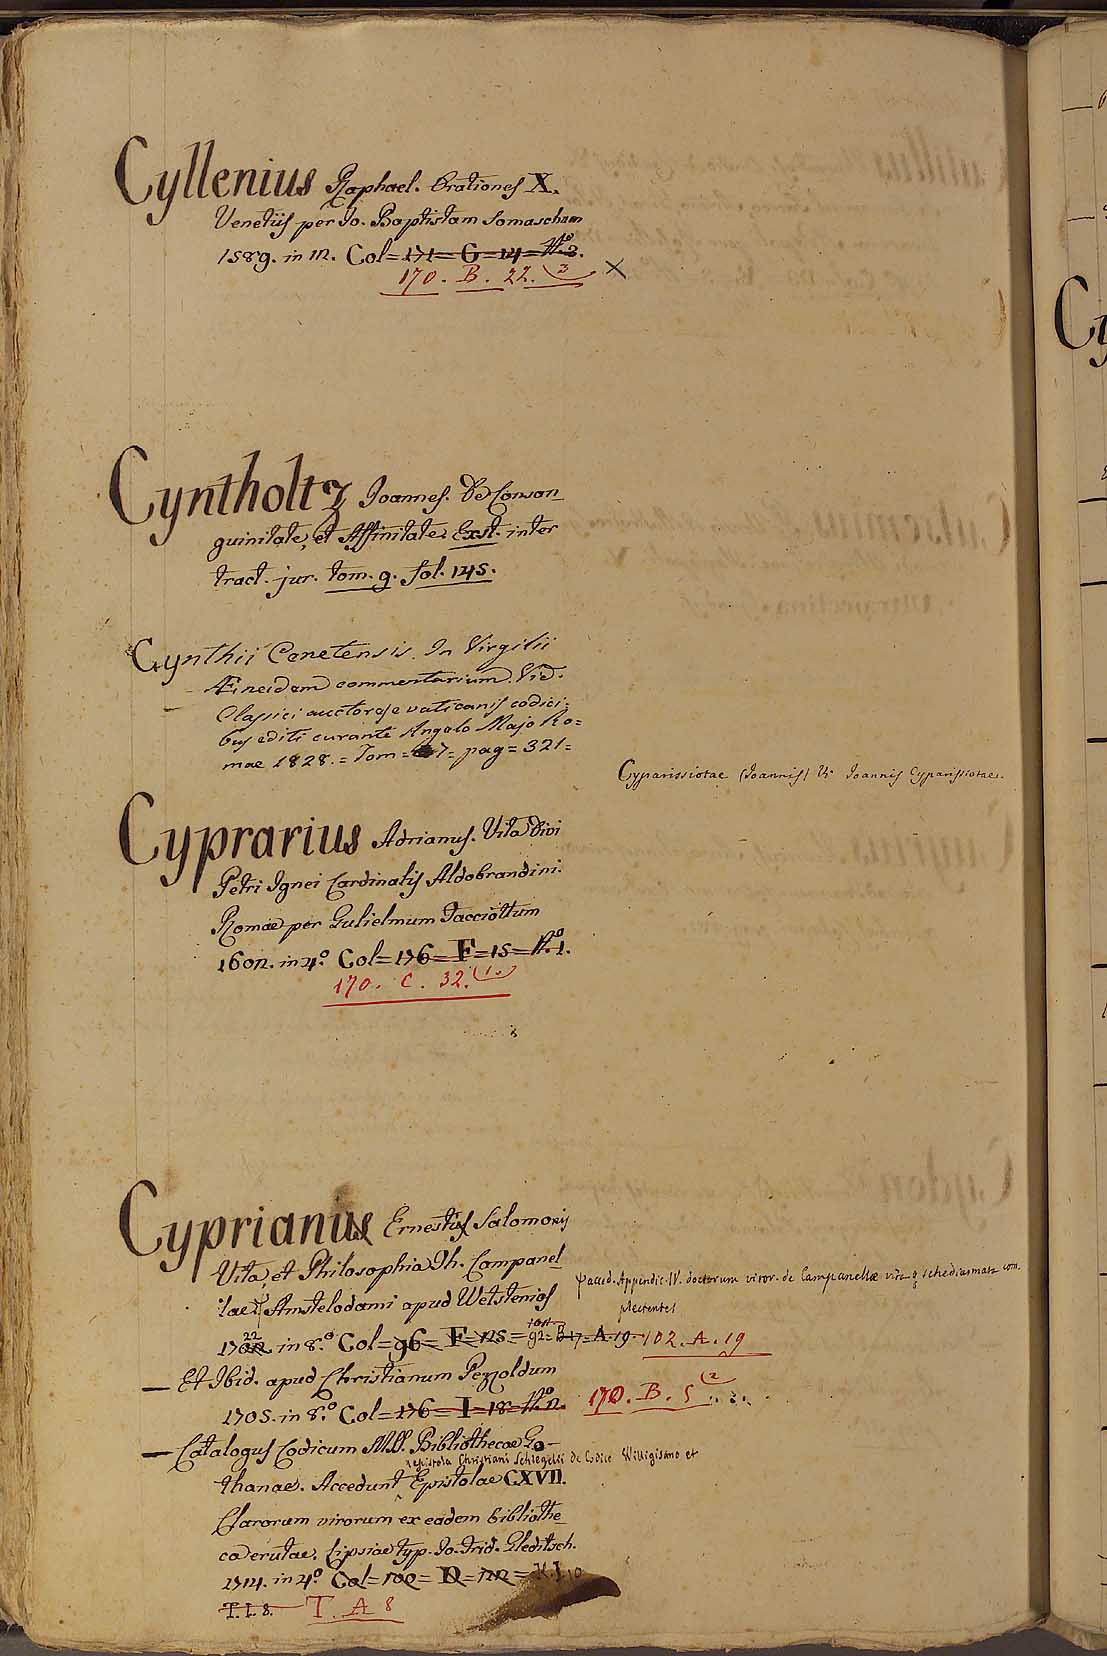 Cyllenius Raphael. Orationes X.
Venetiis per Jo. Baptistam Somaschum
1589. in 12. Col=171=G=14=N.º 3.
170. B. 22. (3 X
Cyntholtz Joannes. De Consan_
guinitate, et Affinitate. Exst. inter
tract. jur. tom. 9. fol. 145.
Cynthii Cenetensis. In Virgilii
Æneidem commentarium. Vid.
Classici auctores e vaticanis codici=
bus editi curante Angelo Majo Ro=
mae 1828.=Tom=7=pag=321=
Cyparissiotae (Joannis) Vº Joannis Cyparissiotae.
Cyprarius Adrianus. Vita Divi
Petri Ignei Cardinalis Aldobrandini.
Romae per Gulielmum Facciottum
1602. in 4.º Col=176=F=15=N.º 1.
170. C. 32. (1.
Cyprianus Ernestus Salomonis
Vita, et Philosophia Th. Campanel_
lae. Amstelodami apud Wetstenios
accèd. Appendic. IV. doctorum viror. de Campanellæ vita schediasmata com
plectentes
1722. in 8.º Col=96=F=25=92=B 17=A. 19. 102. A. 19
— Et Ibid. apud Christianum Pezzoldum
1705. in 8.º Col=176=I=18=N.º 2. 170. B. 5 (2
— Catalogus Codicum MSS. Bibliothecae Go-
epistola Christiani Schlegelii de Codice Willigisano et
thanae. Accedunt Epistolae CXVII.
Clarorum virorum ex eadem bibliothe_
ca erutae. Lipsiae typ. Jo. Frid. Gleditsch.
1714. in 4.º Col=102=D=22=
T. I. 8. T. A 8